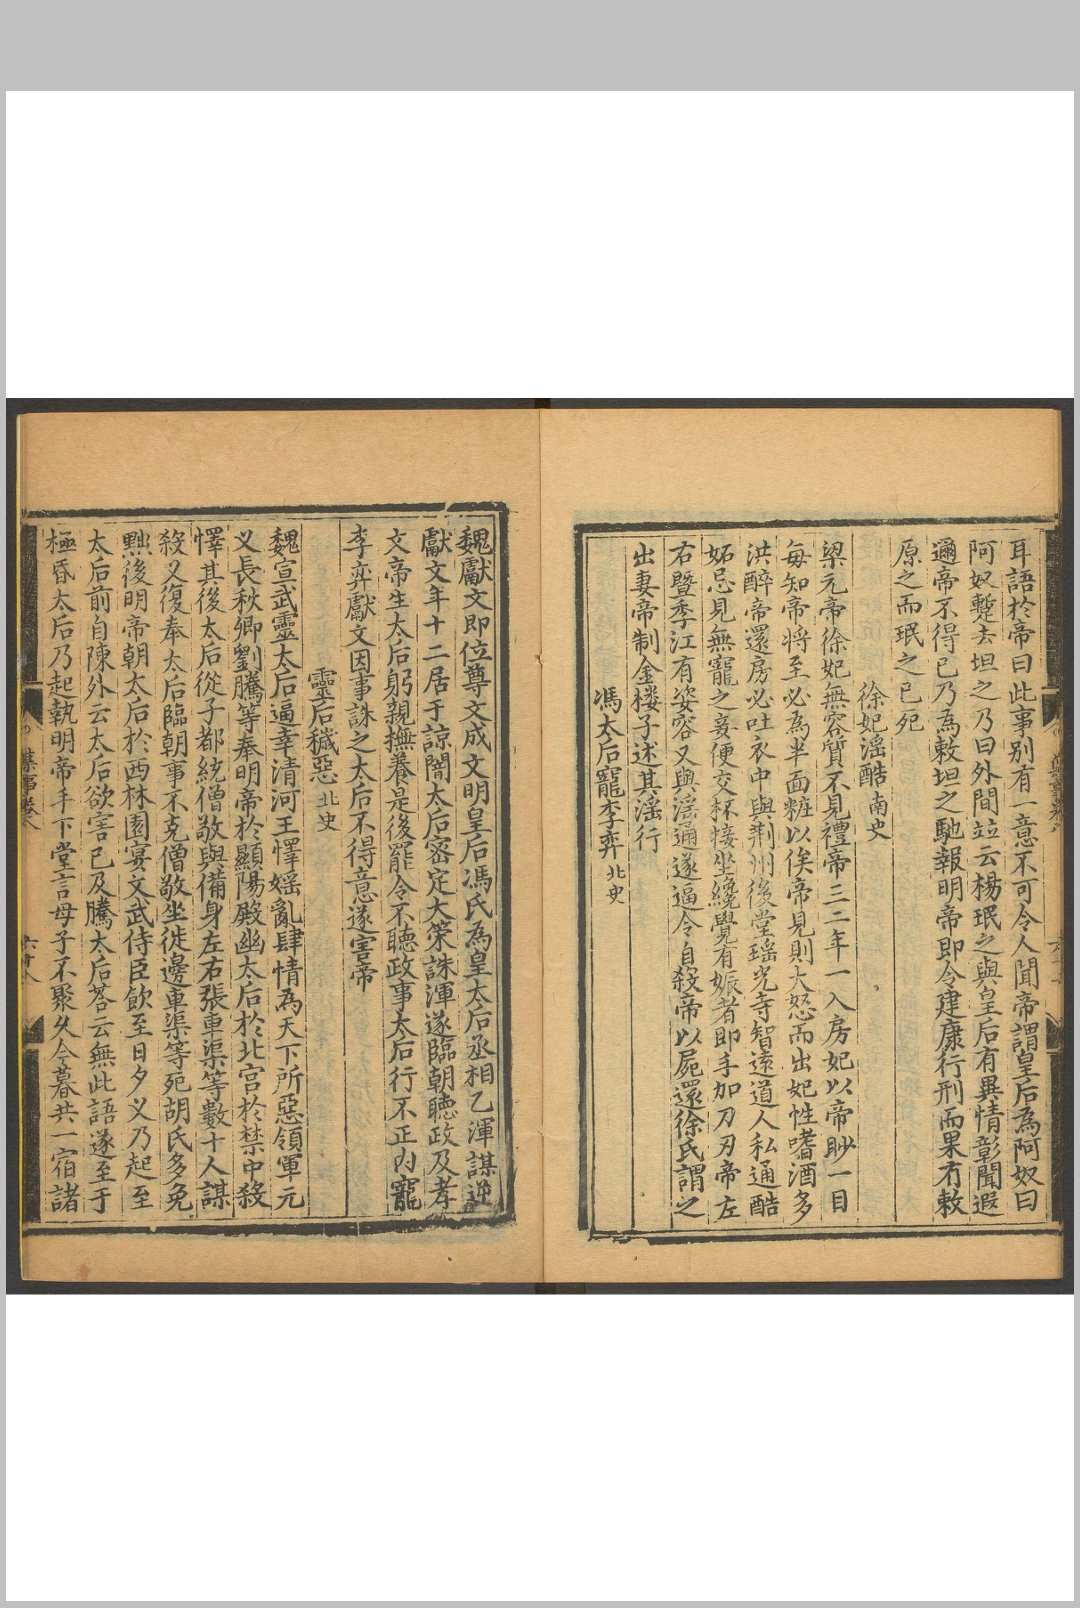 耳語於帝曰此事別有一意不可令人聞帝謂皇后為阿奴曰
阿奴蹔去坦之乃曰外間竝云楊珉之與皇后有異情彰聞遐
邇帝不得已乃為敕坦之馳報明帝即令建康行刑而果有敕
原之而珉之已死
徐妃淫酷南史
梁元帝徐妃無容質不見禮帝三二年一入房妃以帝眇一目
每知帝將至必為半面粧以俟帝見則大怒而出妃性嗜酒多
洪醉帝還房必吐衣中與荆州後堂瑤光寺智遠道人私通酷
妬忌見無寵之妾便交杯接坐纔覺有娠者即手加刀刃帝左
右暨季江有姿容又與淫通遂逼令自殺帝以屍還徐氏謂之
出妻帝制金楼子述其淫行
馮太后寵李弈北史
魏獻文即位尊文成文明皇后馮氏為皇太后丞相乙渾謀逆
獻文年十二居于諒闇太后密定大策誅渾遂臨朝聽政及孝
文帝生太后躬親撫養是後罷令不聽政事太后行不正内寵
李弈獻文因事誅之太后不得意遂害帝
靈后穢惡北史
魏宣武靈太后逼幸清河王懌婬亂肆情為天下所惡領軍元
义長秋卿劉騰等奉明帝於顯陽殿幽太后於北宮於禁中殺
懌其後太后從子都統僧敬與備身左右張車渠等數十人謀
殺义復奉太后臨朝事不克僧敬坐徙邊車渠等死胡氏多免
黜後明帝朝太后於西林園宴文武侍臣飲至日夕义乃起至
太后前自陳外云太后欲害己及騰太后荅云無此語遂至于
極昏太后乃起執明帝手下堂言母子不聚久今暮共一宿諸